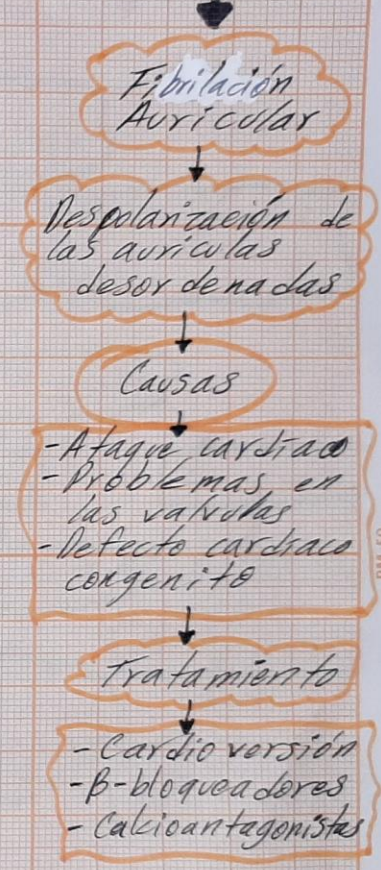 Fibrilación
Auricular
Despolarización de
las auriculas
desordenadas
Causas
- Ataque cardiaco
- Problemas en
las valvulas
- Defecto cardiaco
congenito
Tratamiento
- Cardioversión
- β-bloqueadores
- Calcioantagonistas